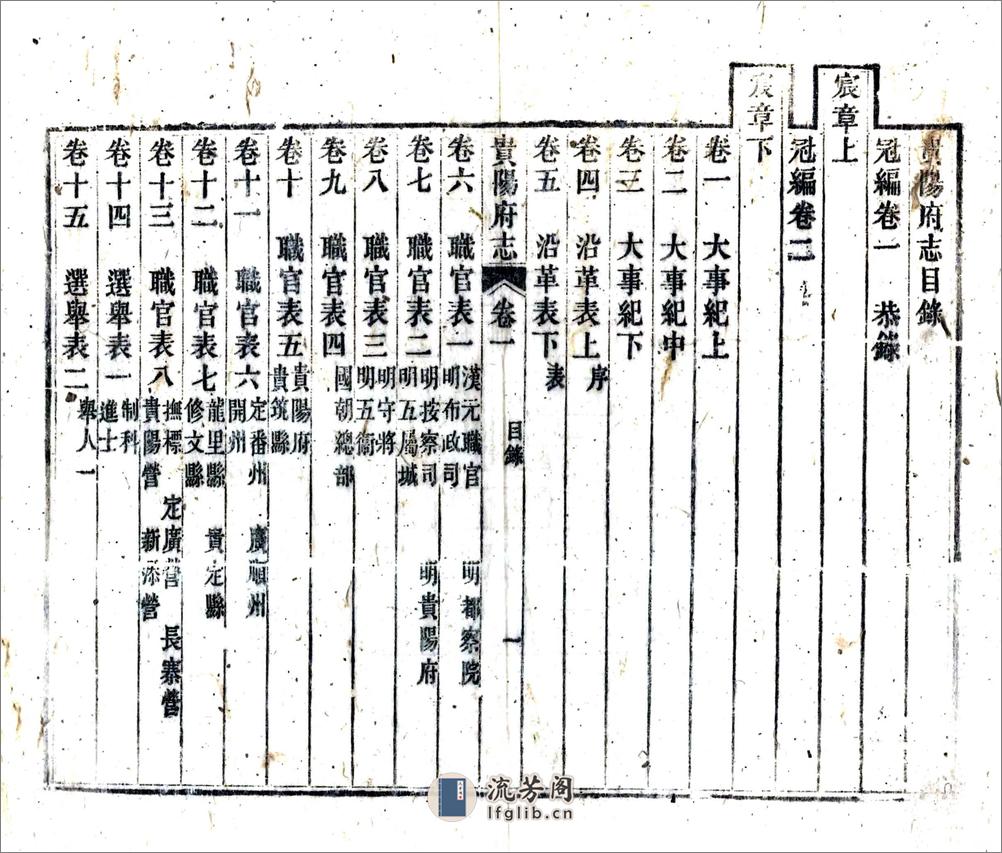 貴陽府志目錄
冠編卷一 恭錄
宸章上
冠編卷二
宸章下
卷一 大事紀上
卷二 大事紀中
卷三 大事紀下
卷四 沿革表上 序
卷五 沿革表下 表
貴陽府志 卷一 目錄 一
卷六 職官表一 漢元職官 明都察院
明布政司
卷七 職官表二 明按察司 明貴陽府
明五屬城
卷八 職官表三 明守將
明五衞
卷九 職官表四 國朝總部
卷十 職官表五 貴陽府
貴筑縣
卷十一 職官表六 定番州 廣順州
開州
卷十二 職官表七 龍里縣 貴定縣
修文縣
卷十三 職官表八 撫標 定廣營 長寨營
貴陽營 新添營
卷十四 選舉表一 制科
進士
卷十五 選舉表二 舉人一
流芳阁
lfglib.cn